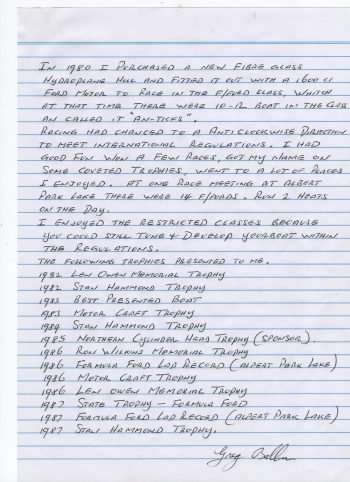 IN 1980 I PURCHASED A NEW FIBRE GLASS
HYDROPLANE HULL AND FITTED IT OUT WITH A 1600 CI
FORD MOTOR TO RACE IN THE F/FORD CLASS, WHITCH
AT THAT TIME THERE WERE 10-12 BOAT IN THE CLASS
AN CALLED IT "AN-TICKS".
RACING HAD CHANGED TO A ANTICLOCKWISE DIRECTION
TO MEET INTERNATIONAL REGULATIONS. I HAD
GOOD FUN WON A FEW RACES, GOT MY NAME ON
SOME COVETED TROPHIES, WENT TO A LOT OF PLACES
I ENJOYED. AT ONE RACE MEETING AT ALBERT
PARK LAKE THERE WERE 14 F/FORDS. RUN 2 HEATS
ON THE DAY.
I ENJOYED THE RESTRICTED CLASSES BECAUSE
YOU COULD STILL TUNE & DEVELOP YOUR BOAT WITHIN
THE REGULATIONS.
THE FOLLOWING TROPHIES PRESENTED TO ME.
1982 LEN OWEN MEMORIAL TROPHY
1982 STAN HAMMOND TROPHY
1983 BEST PRESENTED BOAT
1983 MOTOR CRAFT TROPHY
1984 STAN HAMMOND TROPHY
1985 NORTHERN CYLINDER HEAD TROPHY (SPONSOR).
1986 RON WILKINS MEMORIAL TROPHY
1986 FORMULA FORD LAP RECORD (ALPERT PARK LAKE)
1986 MOTOR CRAFT TROPHY
1986 LEN OWEN MEMORIAL TROPHY
1987 STATE TROPHY - FORMULA FORD
1987 FORMULA FORD LAP RECORD (ALPERT PARK LAKE)
1987 STAN HAMMOND TROPHY.
Greg